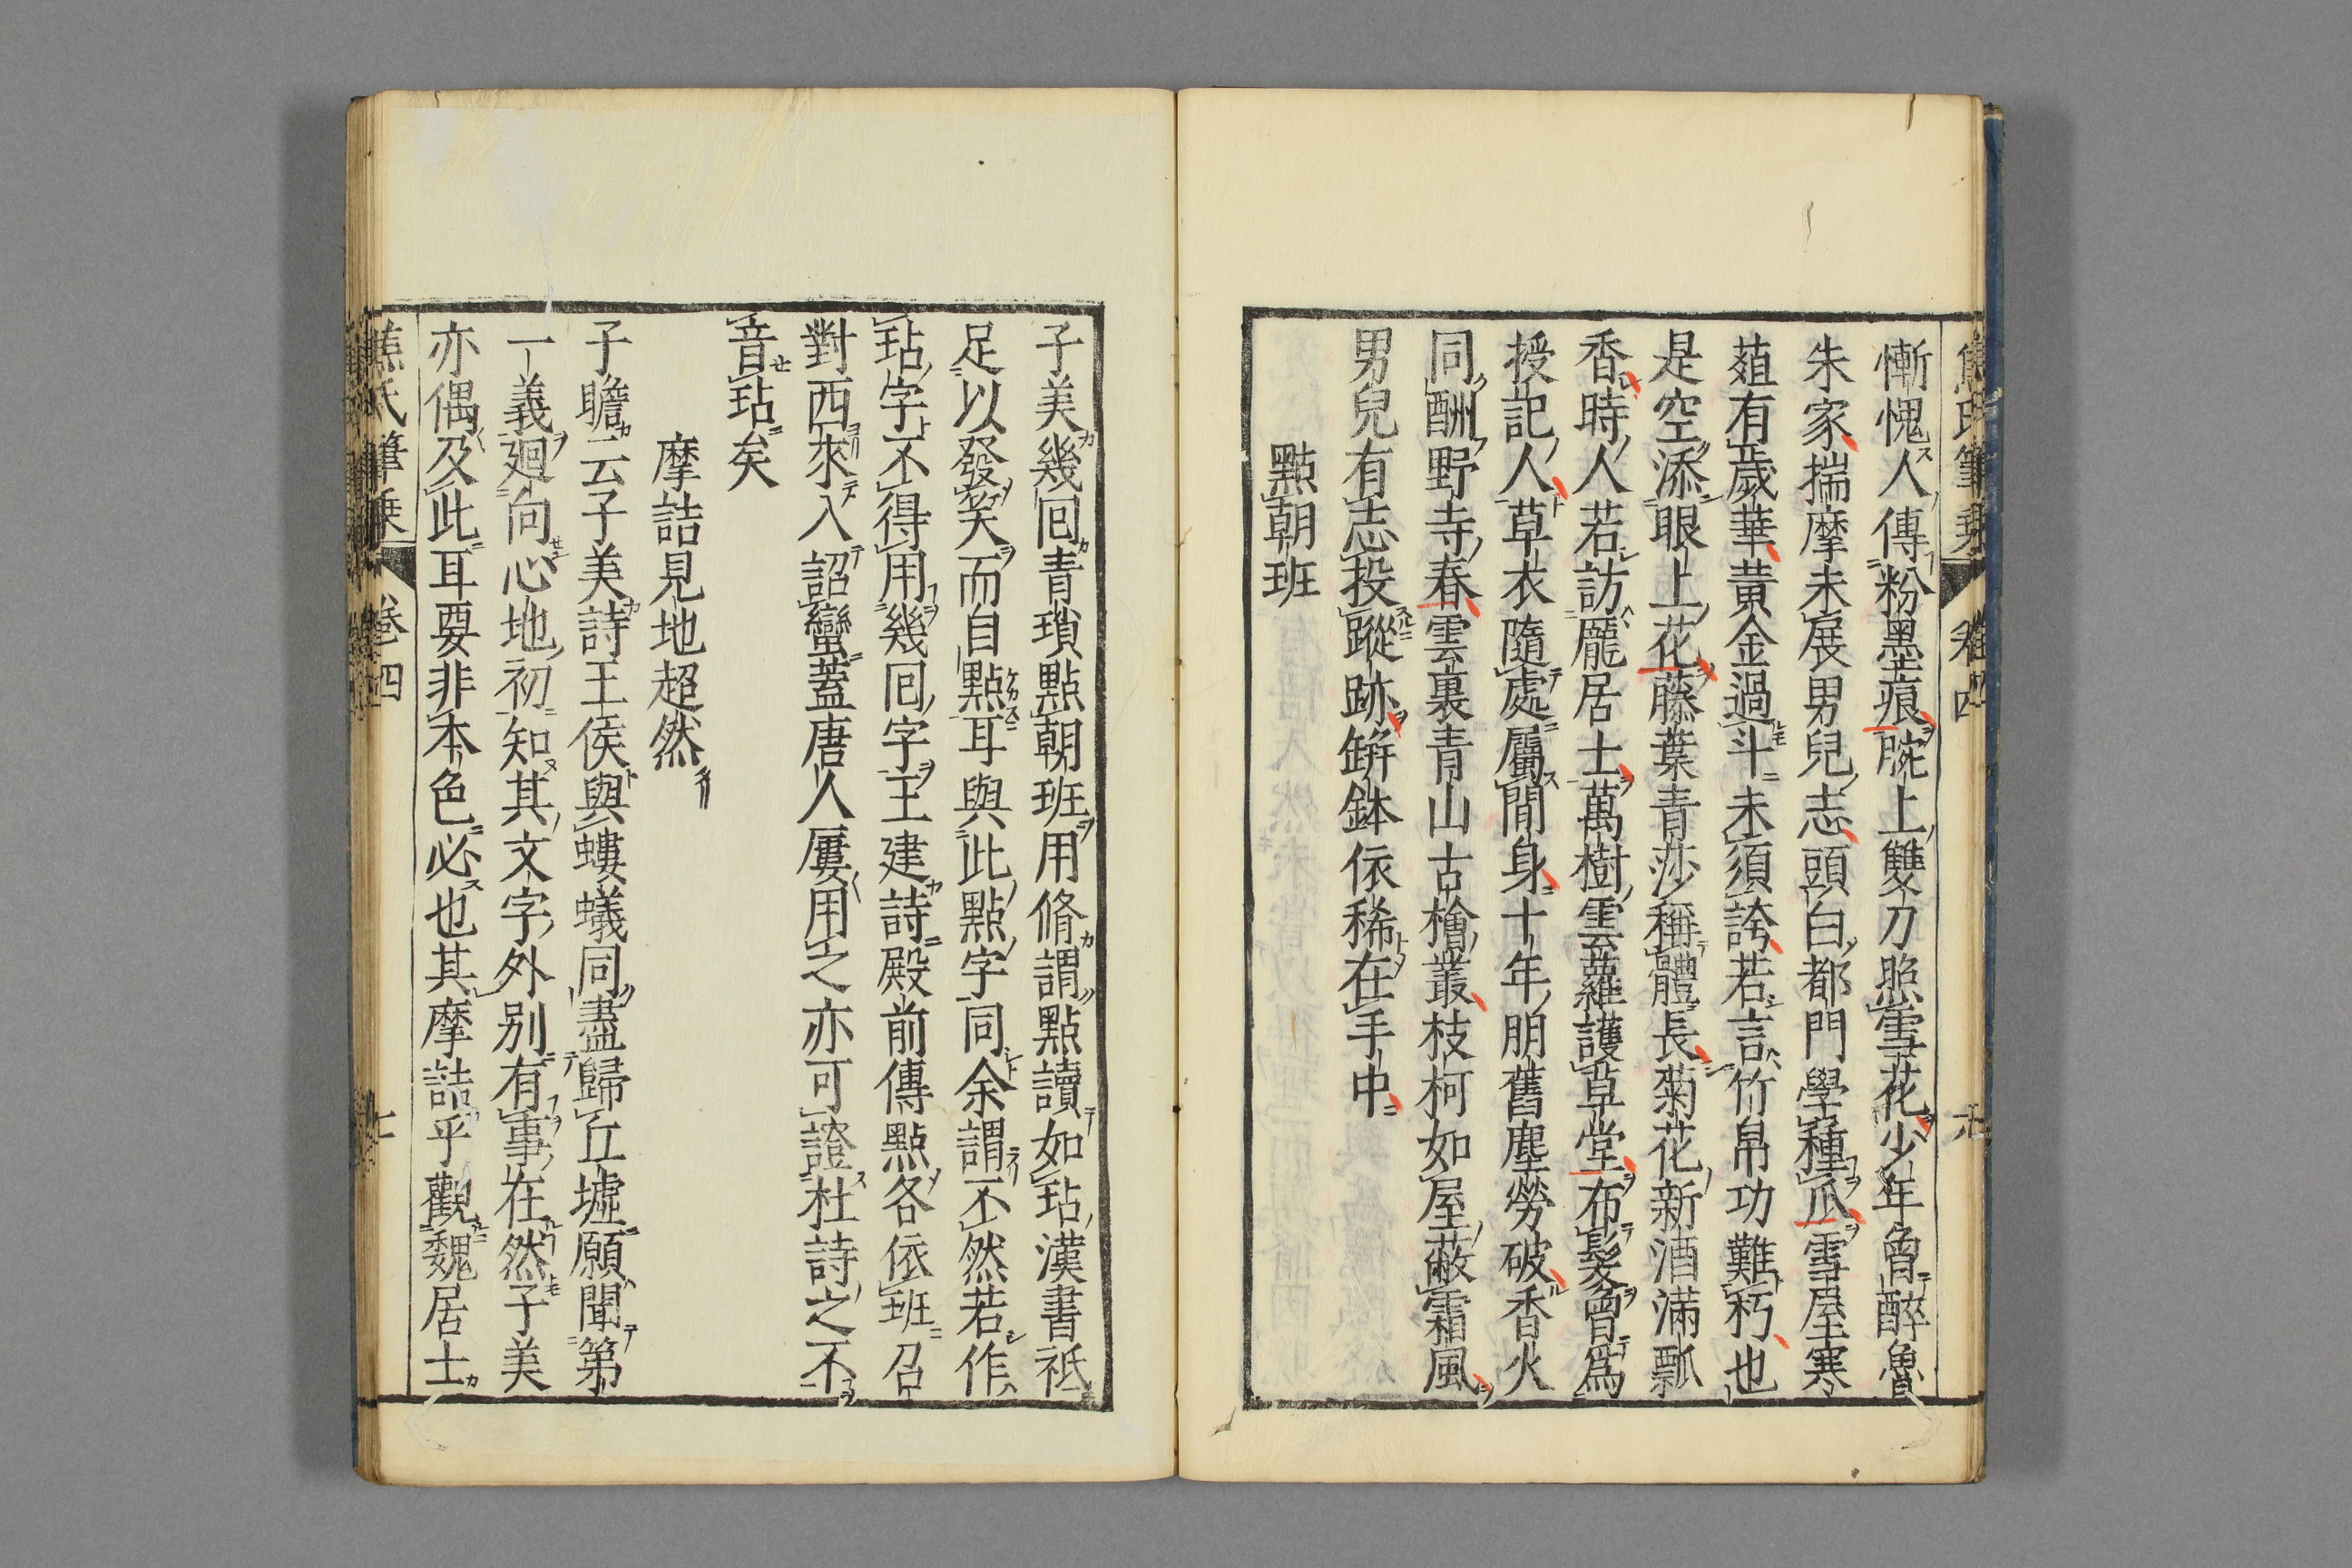 焦氏筆乗 卷四
慚愧人傳粉墨痕腕上雙刀照雪花少年曾醉魯
朱家揣摩未展男兒志頭白都門學種瓜雪屋寒
葅有歲華黃金過斗未須誇若言竹帛功難朽也
是空添眼上花藤葉青莎稱體長菊花新酒滿瓢
香時人若訪龐居士萬樹雲蘿護草堂布髮曾爲
授記人草衣隨處屬閒身十年朋舊塵勞破香火
同酬野寺春雲裏青山古檜叢枝柯如屋蔽霜風
男兒有志投蹤跡缾鉢依稀在手中
點朝班
子美幾回青瑣點朝班用脩謂點讀如玷漢書祗
足以發笑而自點耳與此點字同余謂不然若作
玷字不得用幾回字王建詩殿前傳點各依班召
對西來入詔蠻蓋唐人屢用之亦可證杜詩之不
音玷矣
摩詰見地超然
子瞻云子美詩王侯與螻蟻同盡歸丘墟願聞第
一義廻向心地初知其文字外別有事在然子美
亦偶及此耳要非本色必也其摩詰乎觀魏居士
焦氏筆乗 卷四 七